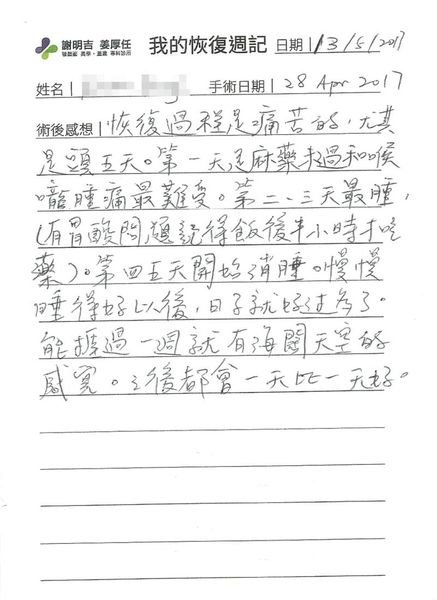 謝明吉 姜厚任
我的恢復週記 日期 | 13/5/2017
姓名 | 手術日期 | 28 Apr 2017
術後感想 | 恢復過程是痛苦的,尤其
是頭五天。第一天是麻藥未過和喉
嚨腫痛最難受。第二、三天最腫,
(有胃酸問題記得飯後半小時才吃
藥)。第四五天開始消腫。慢慢
睡得好以後,日子就好过多了。
能撐過一週就有海闊天空的
感覺。之後都會一天比一天好。